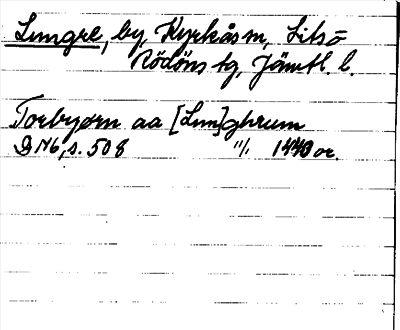 Lungre, by Kyrkås sn, Lits o
Rödöns tg, Jämtl. l.
Torbyørn aa [Lun]ghrum
DN 6, s. 508 11/1 1440 or.